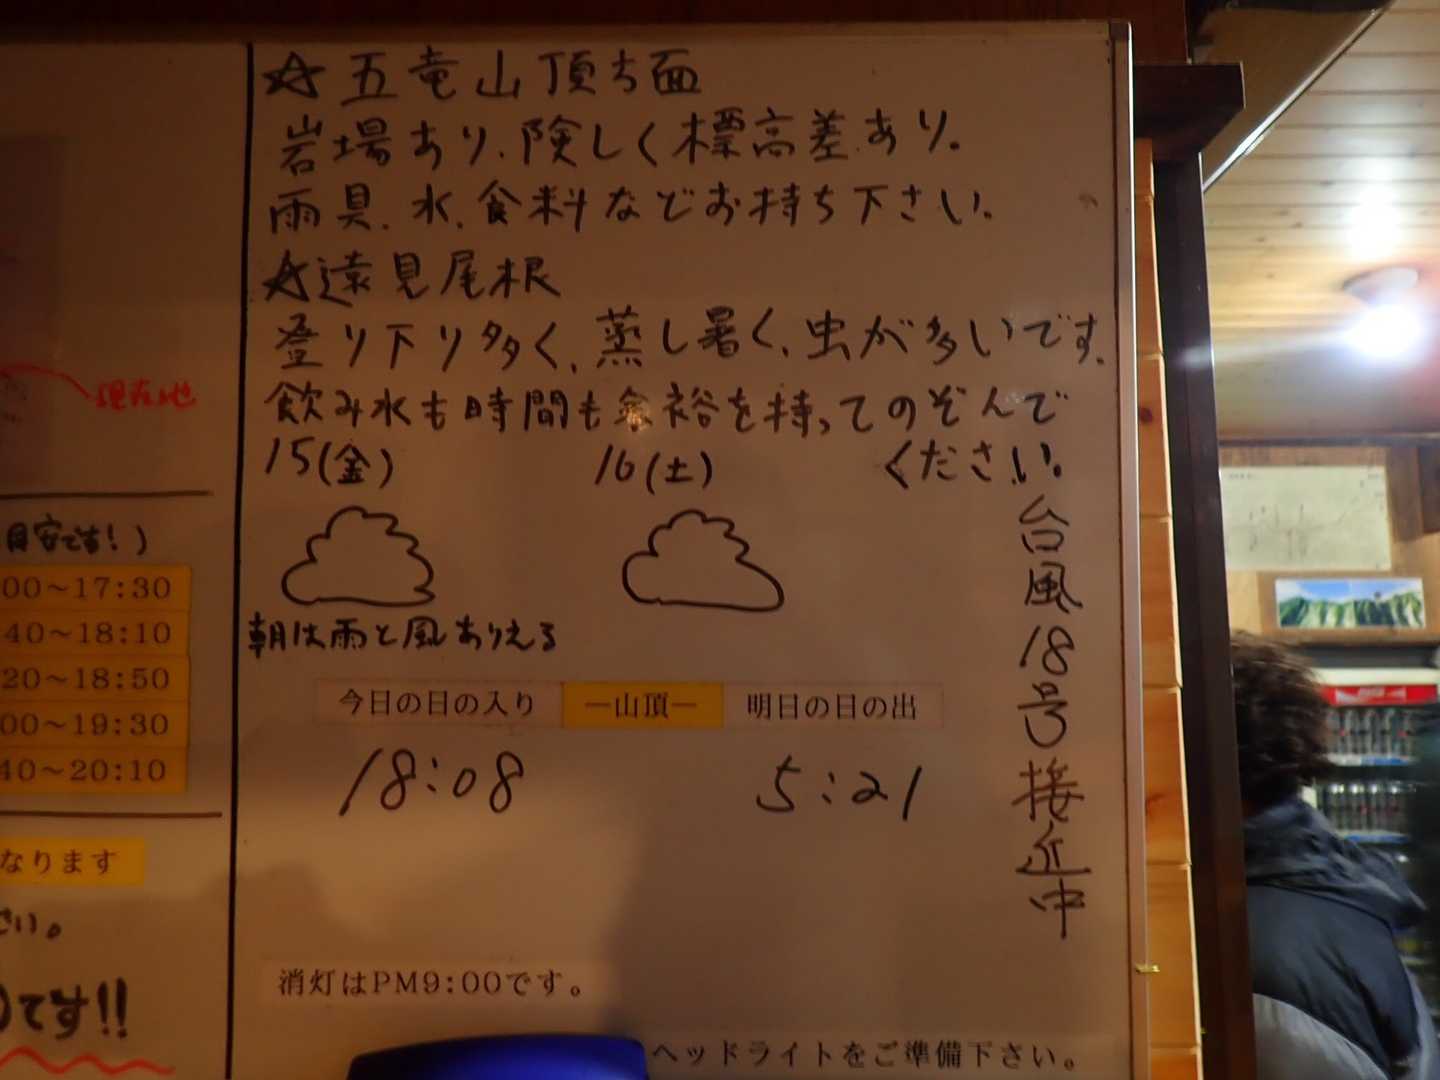 ☆五竜山頂方面
岩場あり、険しく標高差あり。
雨具、水、食料などお持ち下さい。
☆遠見尾根
登り下り多く、蒸し暑く、虫が多いです。
飲み水も時間も余裕を持ってのぞんで
ください。
15(金)
16(土)
朝は雨と風ありえる
台風18号接近中
今日の日の入り
―山頂―
明日の日の出
18:08
5:21
消灯はPM9:00です。
ヘッドライトをご準備下さい。
現在地
目安です!)
00~17:30
40~18:10
20~18:50
00~19:30
40~20:10
なります
さい。
)です!!